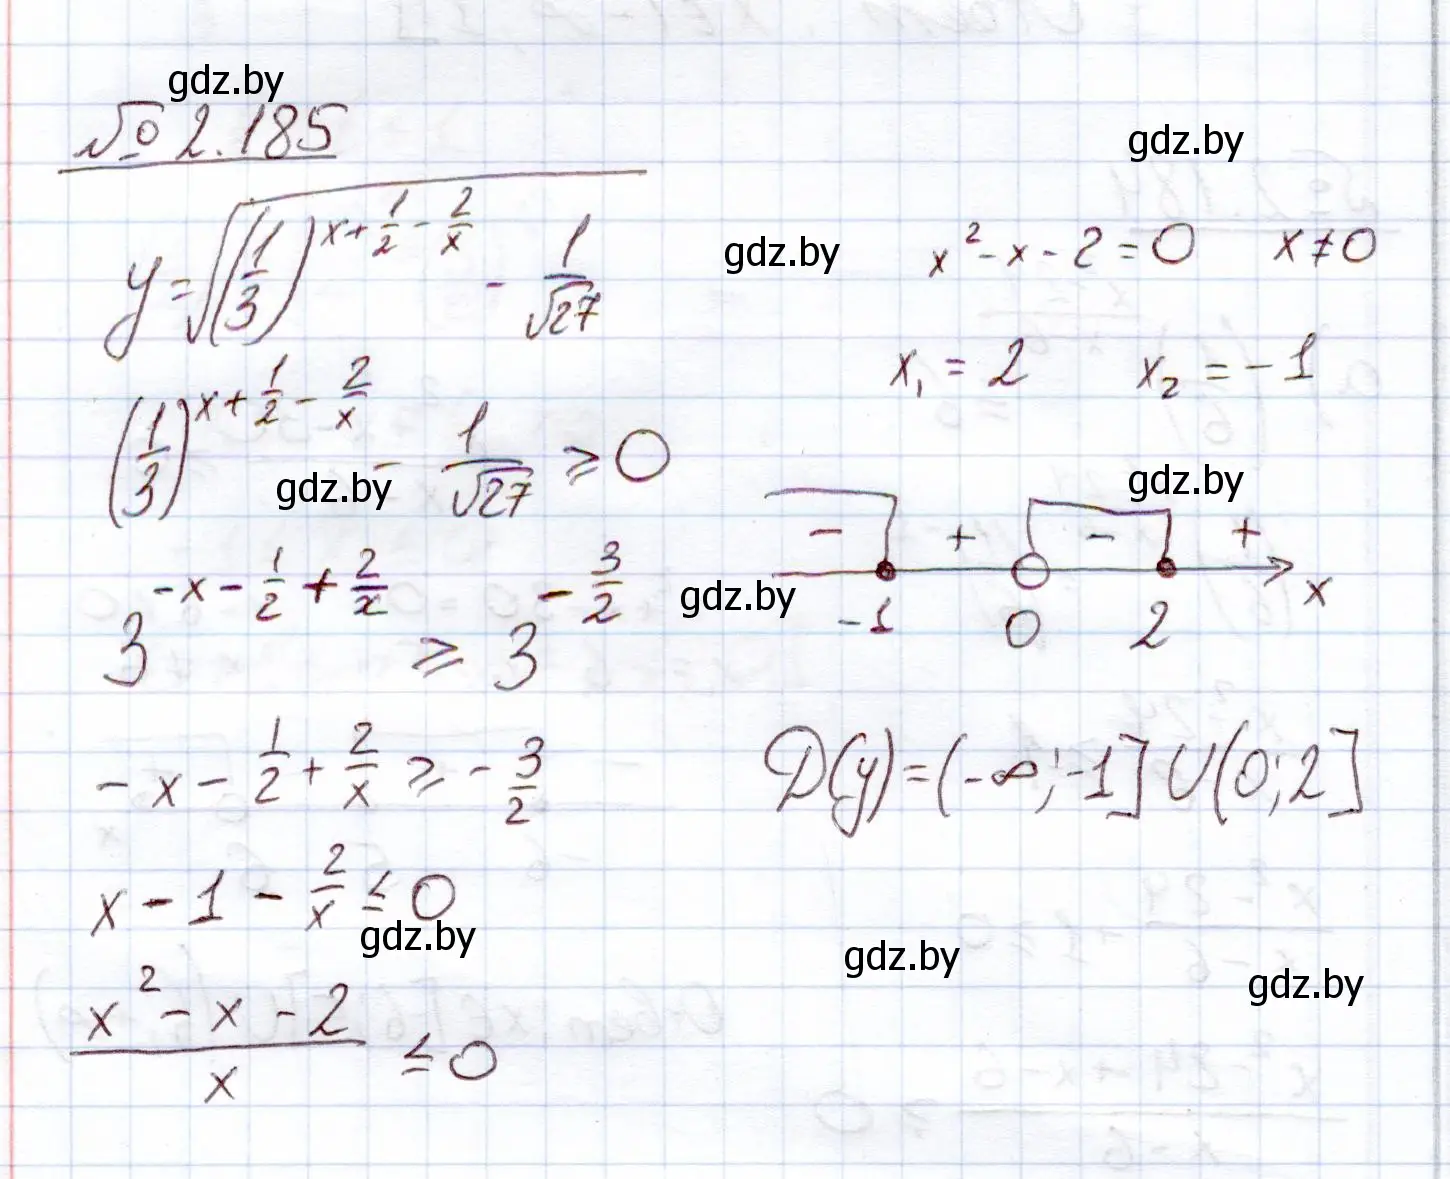 gdz.by
№ 2.185
gdz.by
y = √((1/3)^(x + 1/2 - 2/x) - 1/√27)
gdz.by
x² - x - 2 = 0 x ≠ 0
(1/3)^(x + 1/2 - 2/x) - 1/√27 ≥ 0
gdz.by
x₁ = 2 x₂ = -1
gdz.by
- + - +
-1 0 2 x
3^(-x - 1/2 + 2/x) ≥ 3^(-3/2)
gdz.by
-x - 1/2 + 2/x ≥ -3/2
D(y) = (-∞; -1] U (0; 2]
x - 1 - 2/x ≤ 0
gdz.by
gdz.by
gdz.by
(x² - x - 2)/x ≤ 0